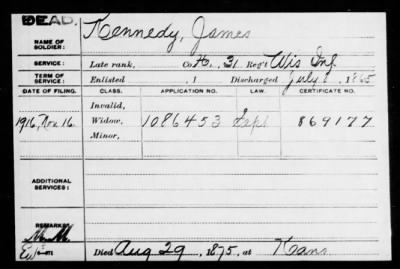 DEAD.
Kennedy, James
NAME OF SOLDIER:
SERVICE: Late rank, Co. H, 31 Reg't Wis Inf
TERM OF SERVICE: Enlisted , 1 Discharged July 8, 1865
DATE OF FILING. CLASS. APPLICATION NO. LAW. CERTIFICATE NO.
Invalid,
1916, Nov 16. Widow, 1086453 Sept 869177
Minor,
ADDITIONAL SERVICES:
REMARKS:
Died Aug 29, 1875, at Kans